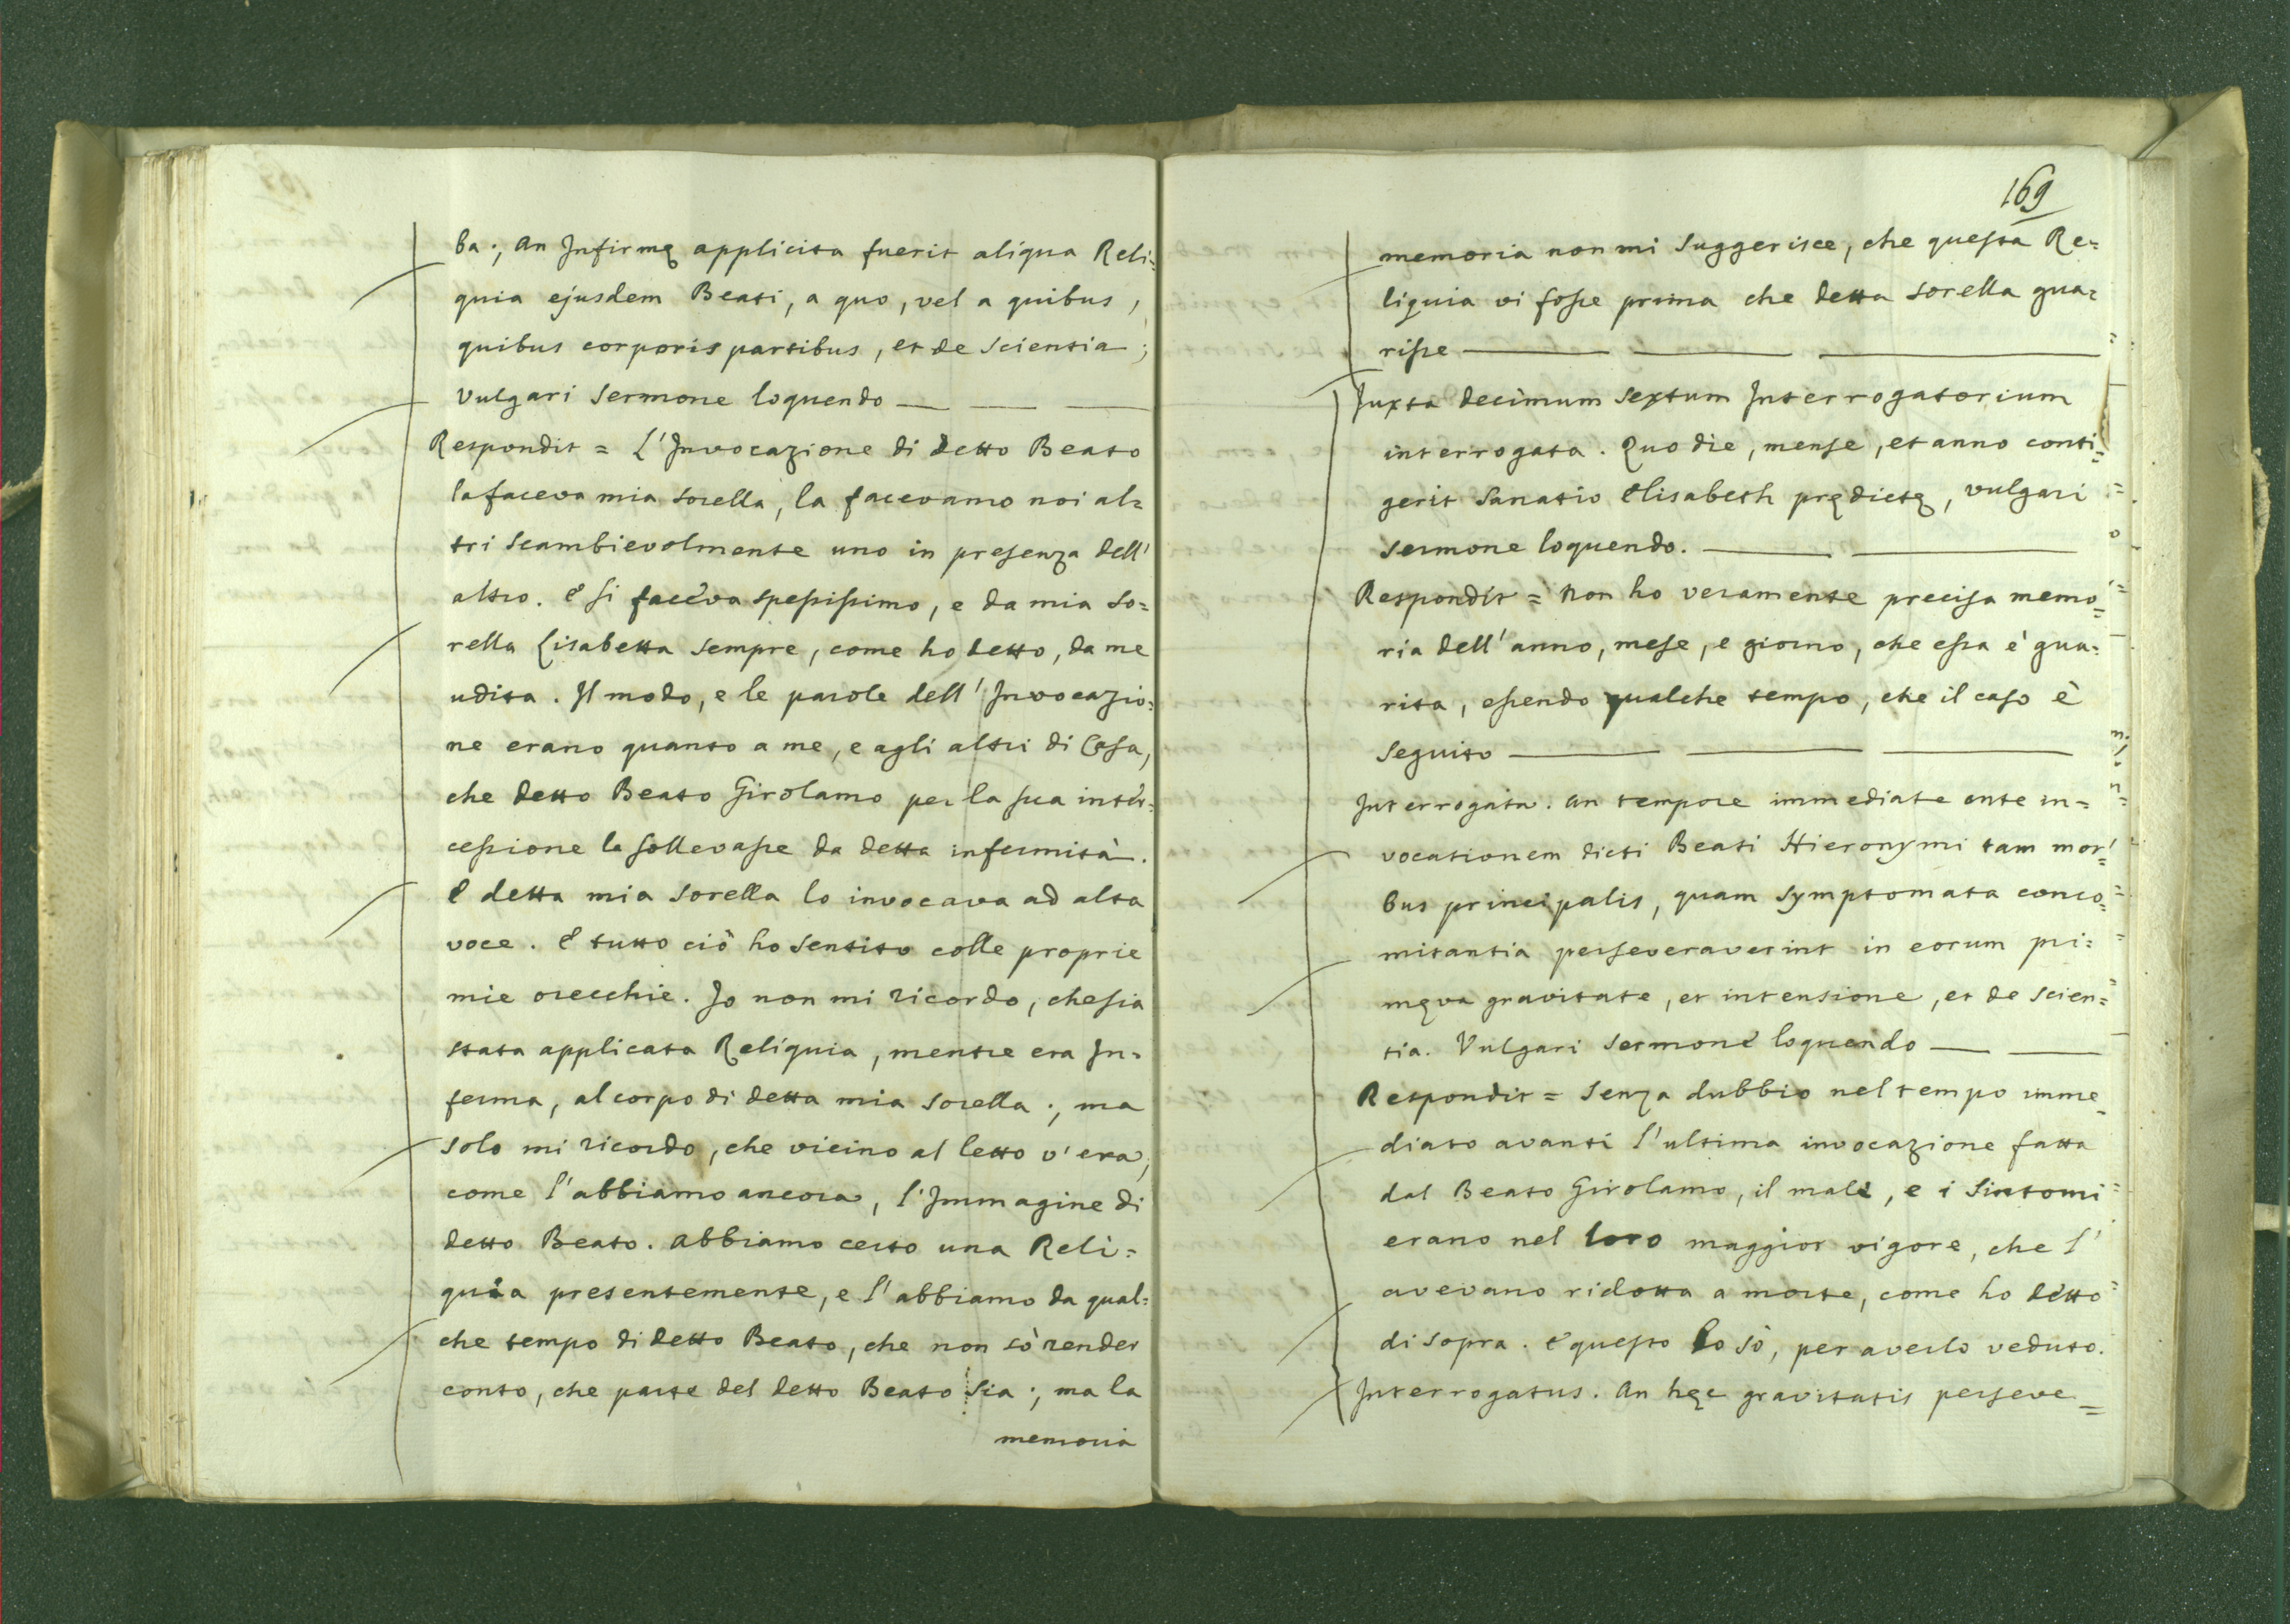 ba; an Infirmę applicita fuerit aliqua Reli=
quia ejusdem Beati, a quo, vel a quibus,
quibus corporis partibus, et de scientia;
vulgari sermone loquendo — — —
Respondit = L'Invocazione di detto Beato
la faceva mia sorella, la facevamo noi al=
tri scambievolmente uno in presenza dell'
altro. E si faceva spessissimo, e da mia so=
rella Lisabetta sempre, come ho detto, da me
udita. Il modo, e le parole dell'Invocazio=
ne erano quanto a me, e agli altri di Casa,
che detto Beato Girolamo per la sua inter=
cessione la sollevasse da detta infermità.
E detta mia sorella lo invocava ad alta
voce. E tutto ciò ho sentito colle proprie
mie orecchie. Io non mi ricordo, che sia
stata applicata Reliquia, mentre era In=
ferma, al corpo di detta mia sorella; ma
solo mi ricordo, che vicino al letto v'era,
come l'abbiamo ancora, l'Immagine di
detto Beato. abbiamo certo una Reli=
quia presentemente, e l'abbiamo da qual=
che tempo di detto Beato, che non sò render
conto, che parte del detto Beato sia; ma la
memoria
169
memoria non mi suggerisce, che questa Re=
liquia vi fosse prima che detta sorella gua=
risse — — —
Juxta decimum sextum Interrogatorium
interrogata. Quo die, mense, et anno conti=
gerit sanatio Elisabeth prędictę, vulgari
sermone loquendo. — —
Respondit = Non ho veramente precisa memo=
ria dell'anno, mese, e giorno, che essa è gua=
rita, essendo qualche tempo, che il caso è
seguito — — —
Interrogata. an tempore immediate ante in=
vocationem dicti Beati Hieronymi tam mor=
bus principalis, quam symptomata conco=
mitantia perseveraverint in eorum pri=
męva gravitate, et intensione, et de scien=
tia. Vulgari sermone loquendo — —
Respondit = Senza dubbio nel tempo imme=
diato avanti l'ultima invocazione fatta
dal Beato Girolamo, il male, e i sintomi
erano nel loro maggior vigore, che l'
avevano ridotta a morte, come ho detto
di sopra. E questo lo sò, per averlo veduto.
Interrogatus. An hęc gravitatis perseve=